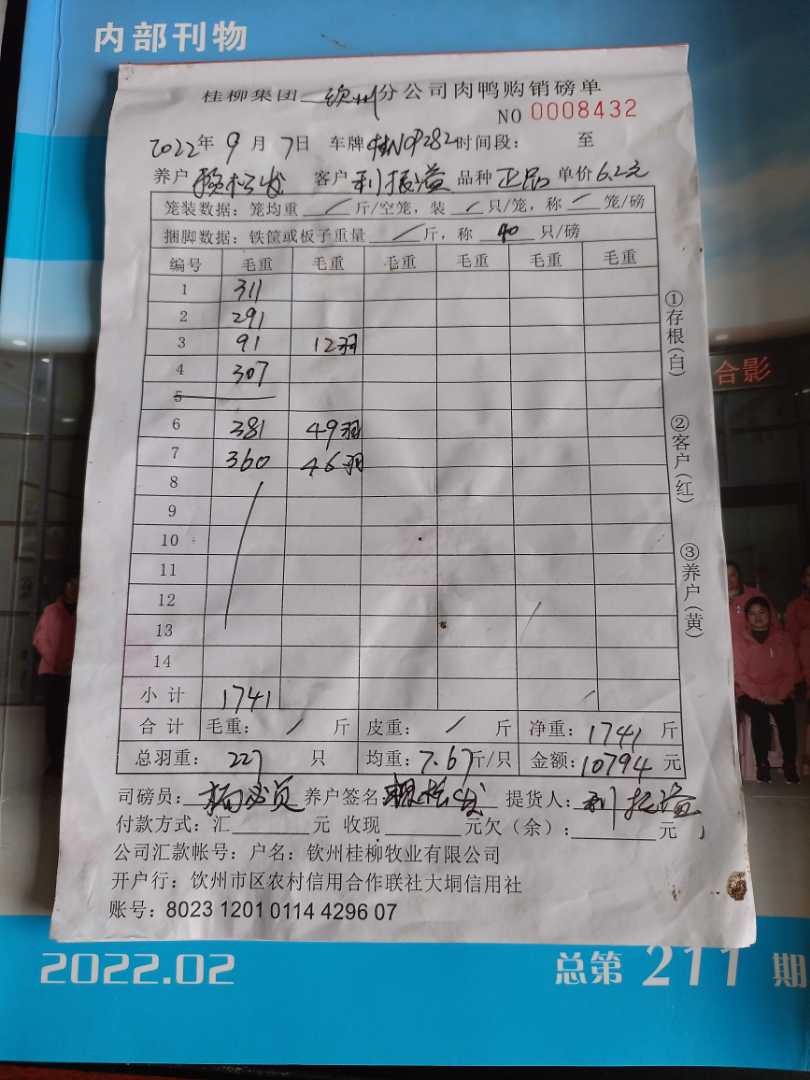 内部刊物
桂柳集团 钦州 分公司肉鸭购销磅单
NO 0008432
2022年 9 月 7日 车牌 桂N0P282 时间段： 至
养户 赖松发 客户 利振溢 品种 正品 单价 6.2元
笼装数据：笼均重 / 斤/空笼，装 / 只/笼，称 / 笼/磅
捆脚数据：铁筐或板子重量 / 斤，称 40 只/磅
编号 毛重 毛重 毛重 毛重 毛重 毛重
1 311
2 291
3 91 12羽
4 307
5
6 381 49羽
7 360 46羽
8
9
10
11
12
13
14
小 计 1741
合 计 毛重： / 斤 皮重： / 斤 净重：1741 斤
总羽重： 227 只 均重：7.67斤/只 金额：10794 元
司磅员： 养户签名 赖松发 提货人：利振溢
付款方式：汇 元 收现 元欠（余）： 元
公司汇款帐号：户名：钦州桂柳牧业有限公司
开户行：钦州市区农村信用合作联社大垌信用社
账号：8023 1201 0114 4296 07
①存根（白）
②客户（红）
③养户（黄）
合影
2022.02
总第 211 期